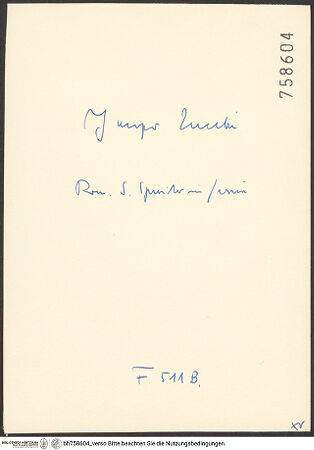 758604
Jacopo Zucchi
Rom. S. Spirito in Sassia
F 511 B.
XV
BIBLIOTHECA HERTZIANA
bh758604_verso Bitte beachten Sie die Nutzungsbedingungen.